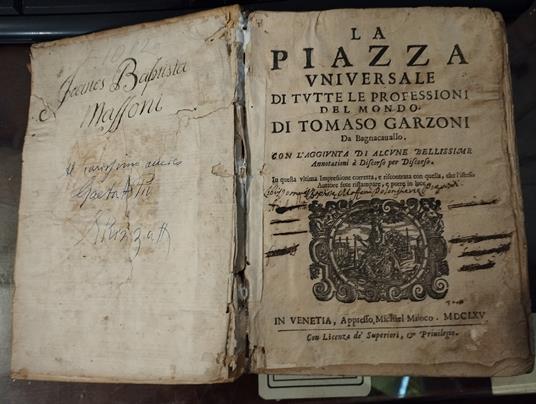 Joanes Baptista
Massoni
LA
PIAZZA
VNIVERSALE
DI TVTTE LE PROFESSIONI
DEL MONDO.
DI TOMASO GARZONI
Da Bagnacauallo.
CON L'AGGIVNTA DI ALCVNE BELLISSIME
Annotationi à Discorso per Discorso.
In questa vltima Impressione corretta, e riscontrata con quella, che l'istesso
Auttore fece ristampare, e porre in luce.
IN VENETIA, Appresso, Michiel Miloco. MDCLXV
Con Licenza de' Superiori, & Priuilegio.